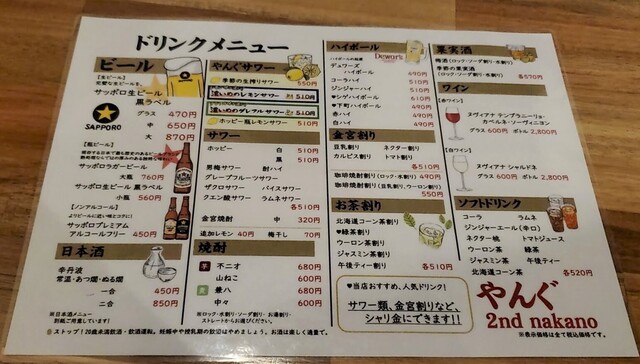 ドリンクメニュー
ビール
【生ビール】
サッポロ生ビール
黒ラベル
SAPPORO
グラス 470円
中 650円
大 870円
【瓶ビール】
サッポロラガービール
大瓶 760円
サッポロ生ビール 黒ラベル
小瓶 560円
【ノンアルコール】
よりビールに近い味とコクに!
サッポロプレミアム
アルコールフリー 450円
日本酒
辛丹波
常温・あつ燗・ぬる燗
一合 450円
二合 850円
※日本酒メニュー
別紙ご用意しています!
やんぐサワー
季節の生搾りサワー 550円
濃いめのレモンサワー 510円
濃いめのグレフルサワー 510円
ホッピー瓶レモンサワー 510円
サワー
ホッピー 白 510円
黒 510円
男梅サワー 酎ハイ
グレープフルーツサワー
ザクロサワー バイスサワー
クエン酸サワー ラムネサワー
各510円
金宮焼酎 中 320円
追加レモン 40円 梅干し 70円
焼酎
芋 不二才 680円
山ねこ 600円
麦 兼八 680円
中々 600円
※ロック・水割り・ソーダ割り・お湯割り・
ストレートからお選びください!
ハイボール
Dewar's
デュワーズ
ハイボール 490円
コーラハイ 510円
ジンジャーハイ 510円
シゲハイボール 610円
♥下町ハイボール 490円
赤ハイ 490円
白ハイ 490円
金宮割り
豆乳割り ネクター割り
カルピス割り トマト割り
各510円
珈琲焼酎割り(ロック・水割り) 490円
珈琲焼酎割り(豆乳割り、ウーロン割り)
550円
お茶割り
北海道コーン茶割り
♥緑茶割り
ウーロン茶割り
ジャスミン茶割り
午後ティー割り 各510円
♥当店おすすめ、人気ドリンク!
サワー類、金宮割りなど、
シャリ金にできます!!
果実酒
梅酒(ロック・ソーダ割り・水割り)
季節の果実酒
(ロック・ソーダ割り・水割り) 各570円
ワイン
【赤ワイン】
ヌヴィアナ テンプラニーリョ・
カベルネ・ソーヴィニヨン
グラス 600円 ボトル 2,800円
【白ワイン】
ヌヴィアナ シャルドネ
グラス 600円 ボトル 2,800円
ソフトドリンク
コーラ ラムネ
ジンジャーエール(辛口)
ネクター桃 トマトジュース
ウーロン茶 緑茶
ジャスミン茶 午後ティー
北海道コーン茶 各520円
やんぐ
2nd nakano
※表示価格は全て税込価格です。
ストップ!20歳未満飲酒・飲酒運転。妊娠中や授乳期の飲酒はやめましょう。お酒は楽しく適量で。